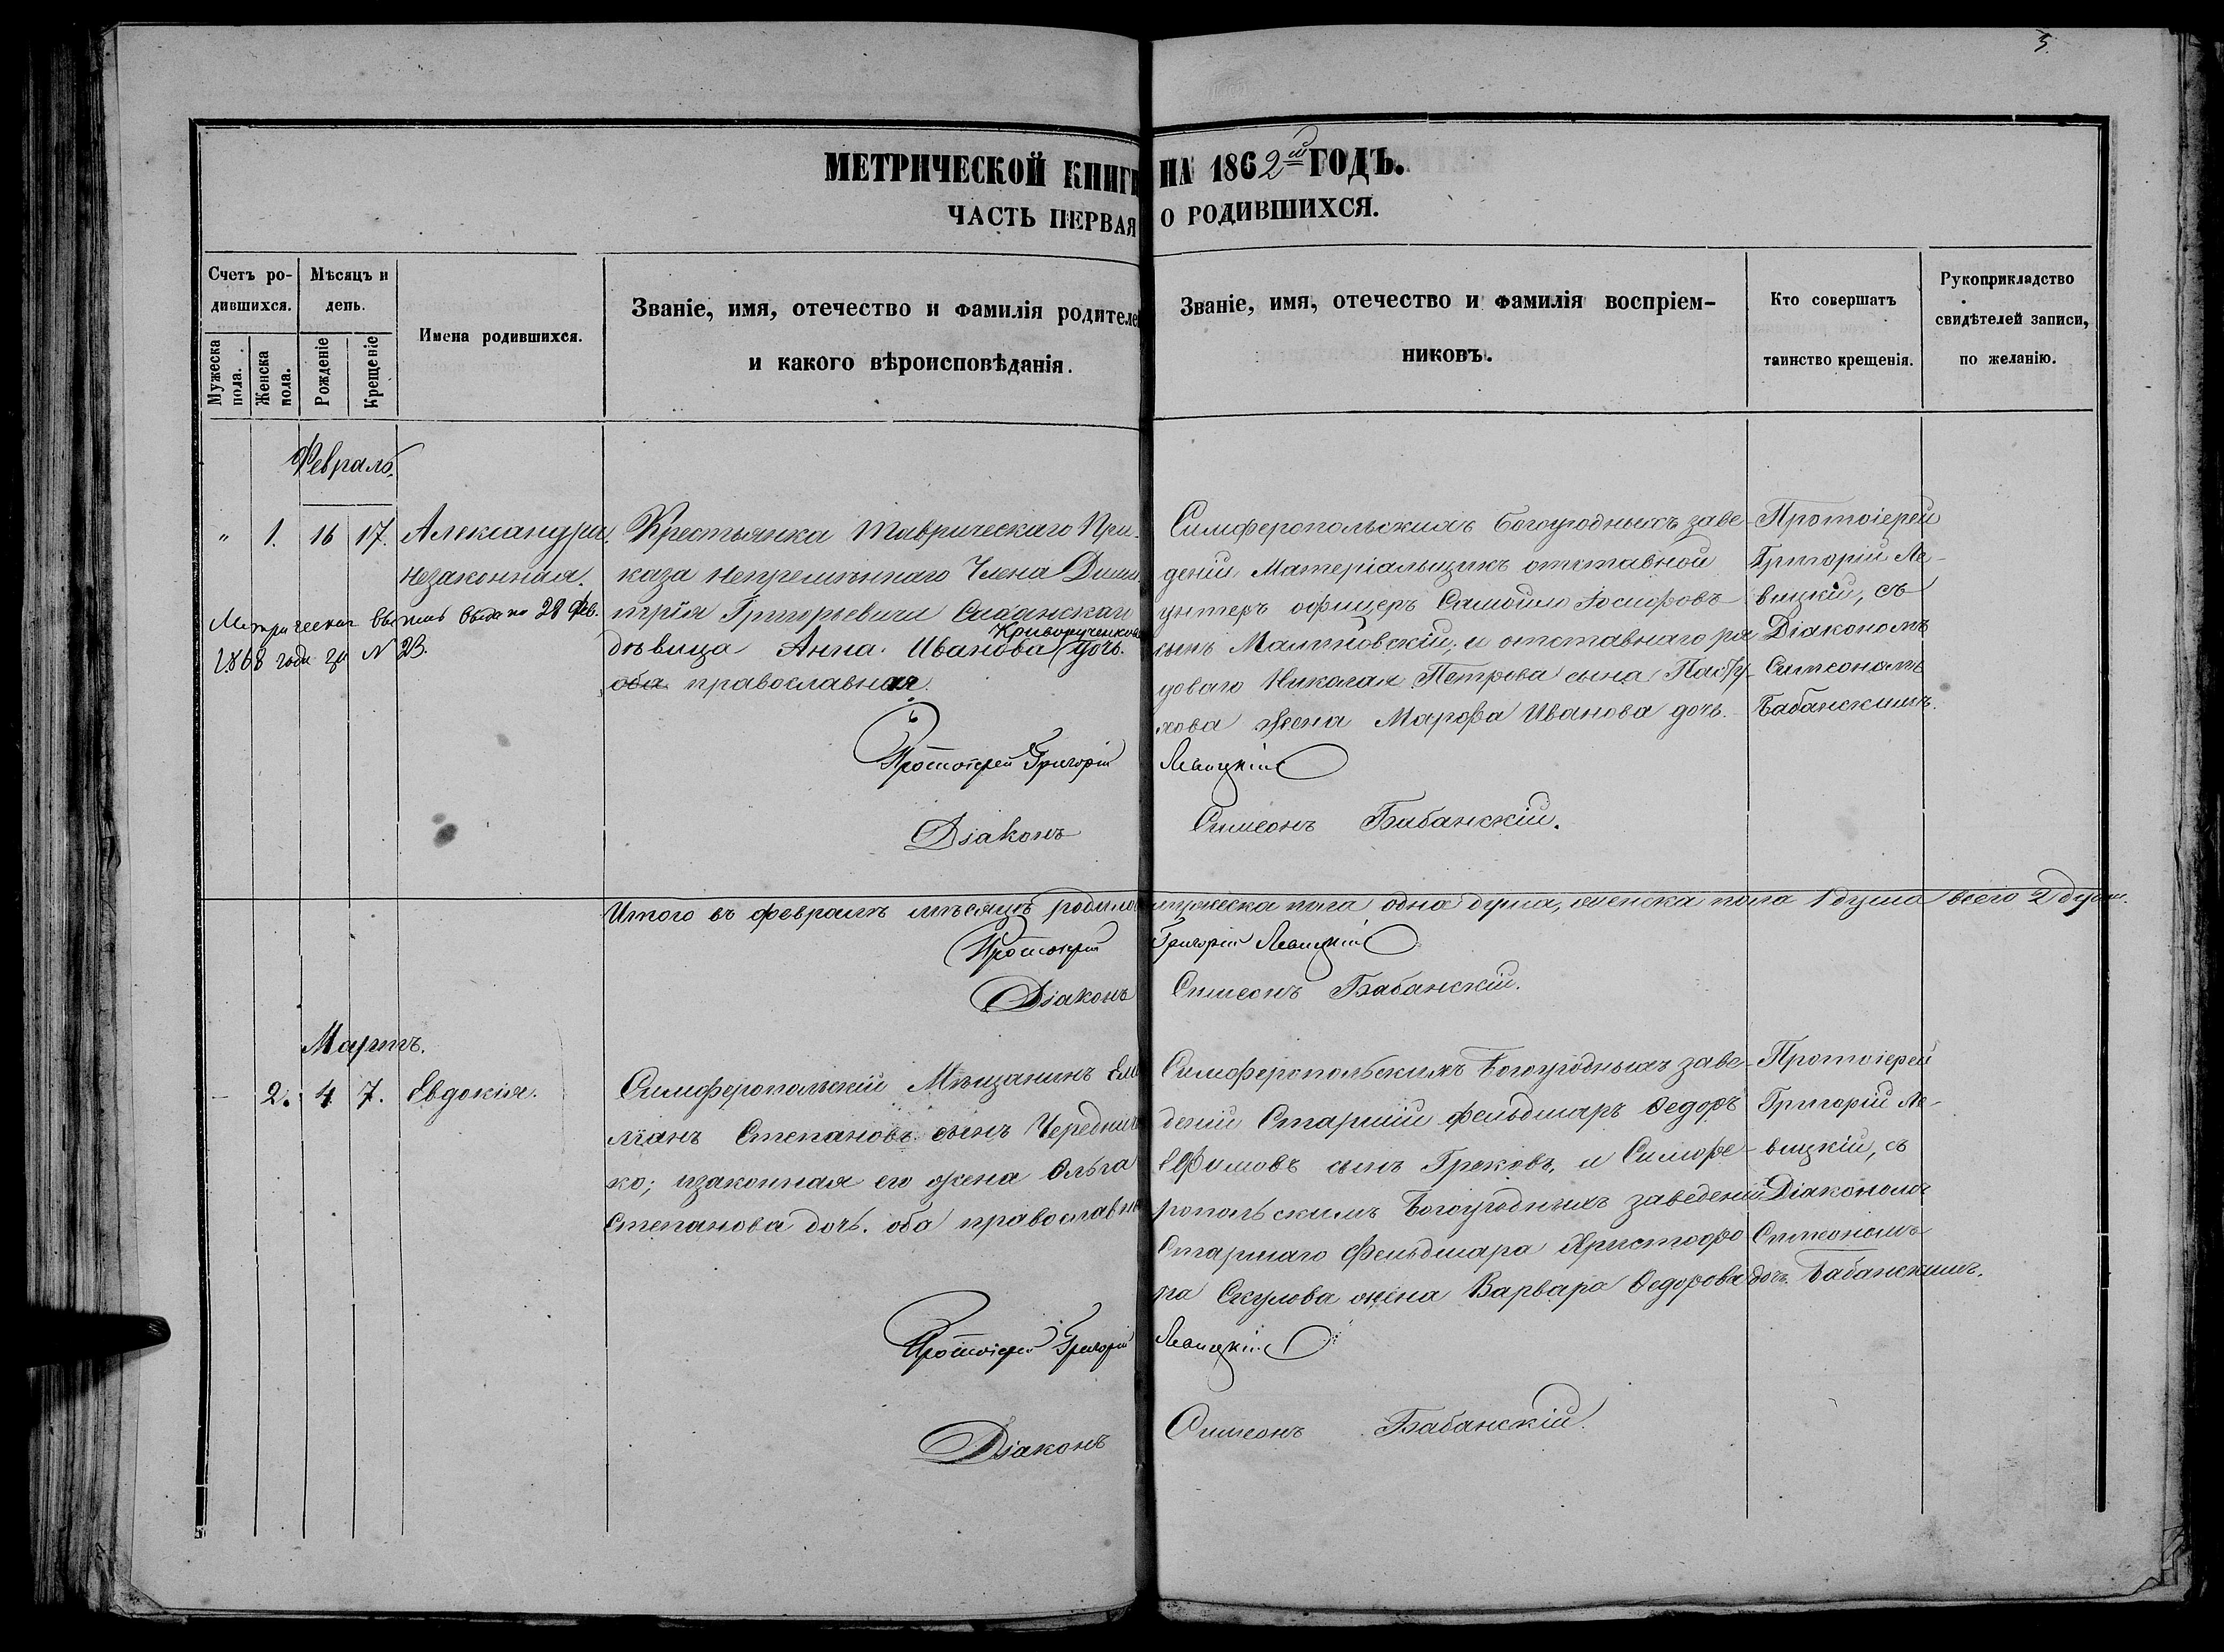 5.
МЕТРИЧЕСКОЙ КНИГИ НА 1862й ГОДЪ.
ЧАСТЬ ПЕРВАЯ О РОДИВШИХСЯ.
Счетъ ро-
дившихся.
Мужеска
пола.
Женска
пола.
Мѣсяцъ и
день.
Рожденіе
Крещеніе
Имена родившихся.
Званіе, имя, отечество и фамилія родителе
и какого вѣроисповѣданія.
Званіе, имя, отечество и фамилія воспріем-
никовъ.
Кто совершатъ
таинство крещенія.
Рукоприкладство
свидѣтелей записи,
по желанію.
Февраль.
" 1. 16 17.
Александра
незаконная.
Метрическая выпись выдана 28 Фев.
1868 года за N 23.
Крестьянка Таврическаго При-
каза Непремѣннаго Члена Дими
трія Григорьевича
Криворученкова
дѣвица Анна Иванова дочь.
оба православная.
Симферопольскихъ Богоугодныхъ заве-
деній Матеріальщикъ отставной
унтеръ офицеръ Самойло Іосифовъ
сынъ и отставнаго ря
доваго Николая Петрова сына
хова жена Марфа Иванова дочь.
Протоіерей
Григорій Ле-
вицкій, съ
Діакономъ
Симеономъ
Бабанскимъ.
Протоіерей Григорій Левицкій
Діаконъ Симеонъ Бабанскій.
Итого въ февралѣ мѣсяцѣ родилось мужеска пола одна душа, женска пола 1 душа всего 2 души.
Протоіерей Григорій Левицкій
Діаконъ Симеонъ Бабанскій.
Мартъ.
- 2. 4 7. Евдокія.
Симферопольскій Мѣщанинъ Еме
ліанъ Степановъ сынъ Чередничен
ко; изаконная его жена Ольга
Степанова дочь. оба православны
Симферопольскихъ Богоугодныхъ заве-
деній Старшій фельдшеръ Ѳедоръ
Ефимовъ сынъ Грековъ, и Симфе-
ропольскихъ Богоугодныхъ заведеній
Старшаго Фельдшара Христофо
ра Скулова жена Варвара Ѳедорова дочь.
Протоіерей
Григорій Ле-
вицкій, съ
Діакономъ
Симеономъ
Бабанскимъ.
Протоіерей Григорій Левицкій
Діаконъ Симеонъ Бабанскій.